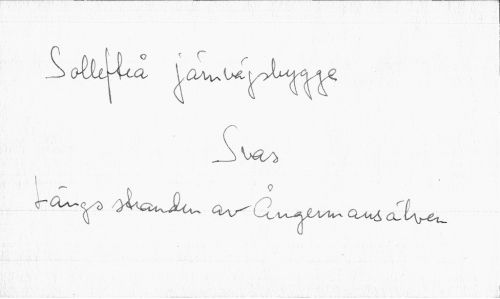 Sollefteå järnvägsbygge
Svas
Längs stranden av Ångermansälven